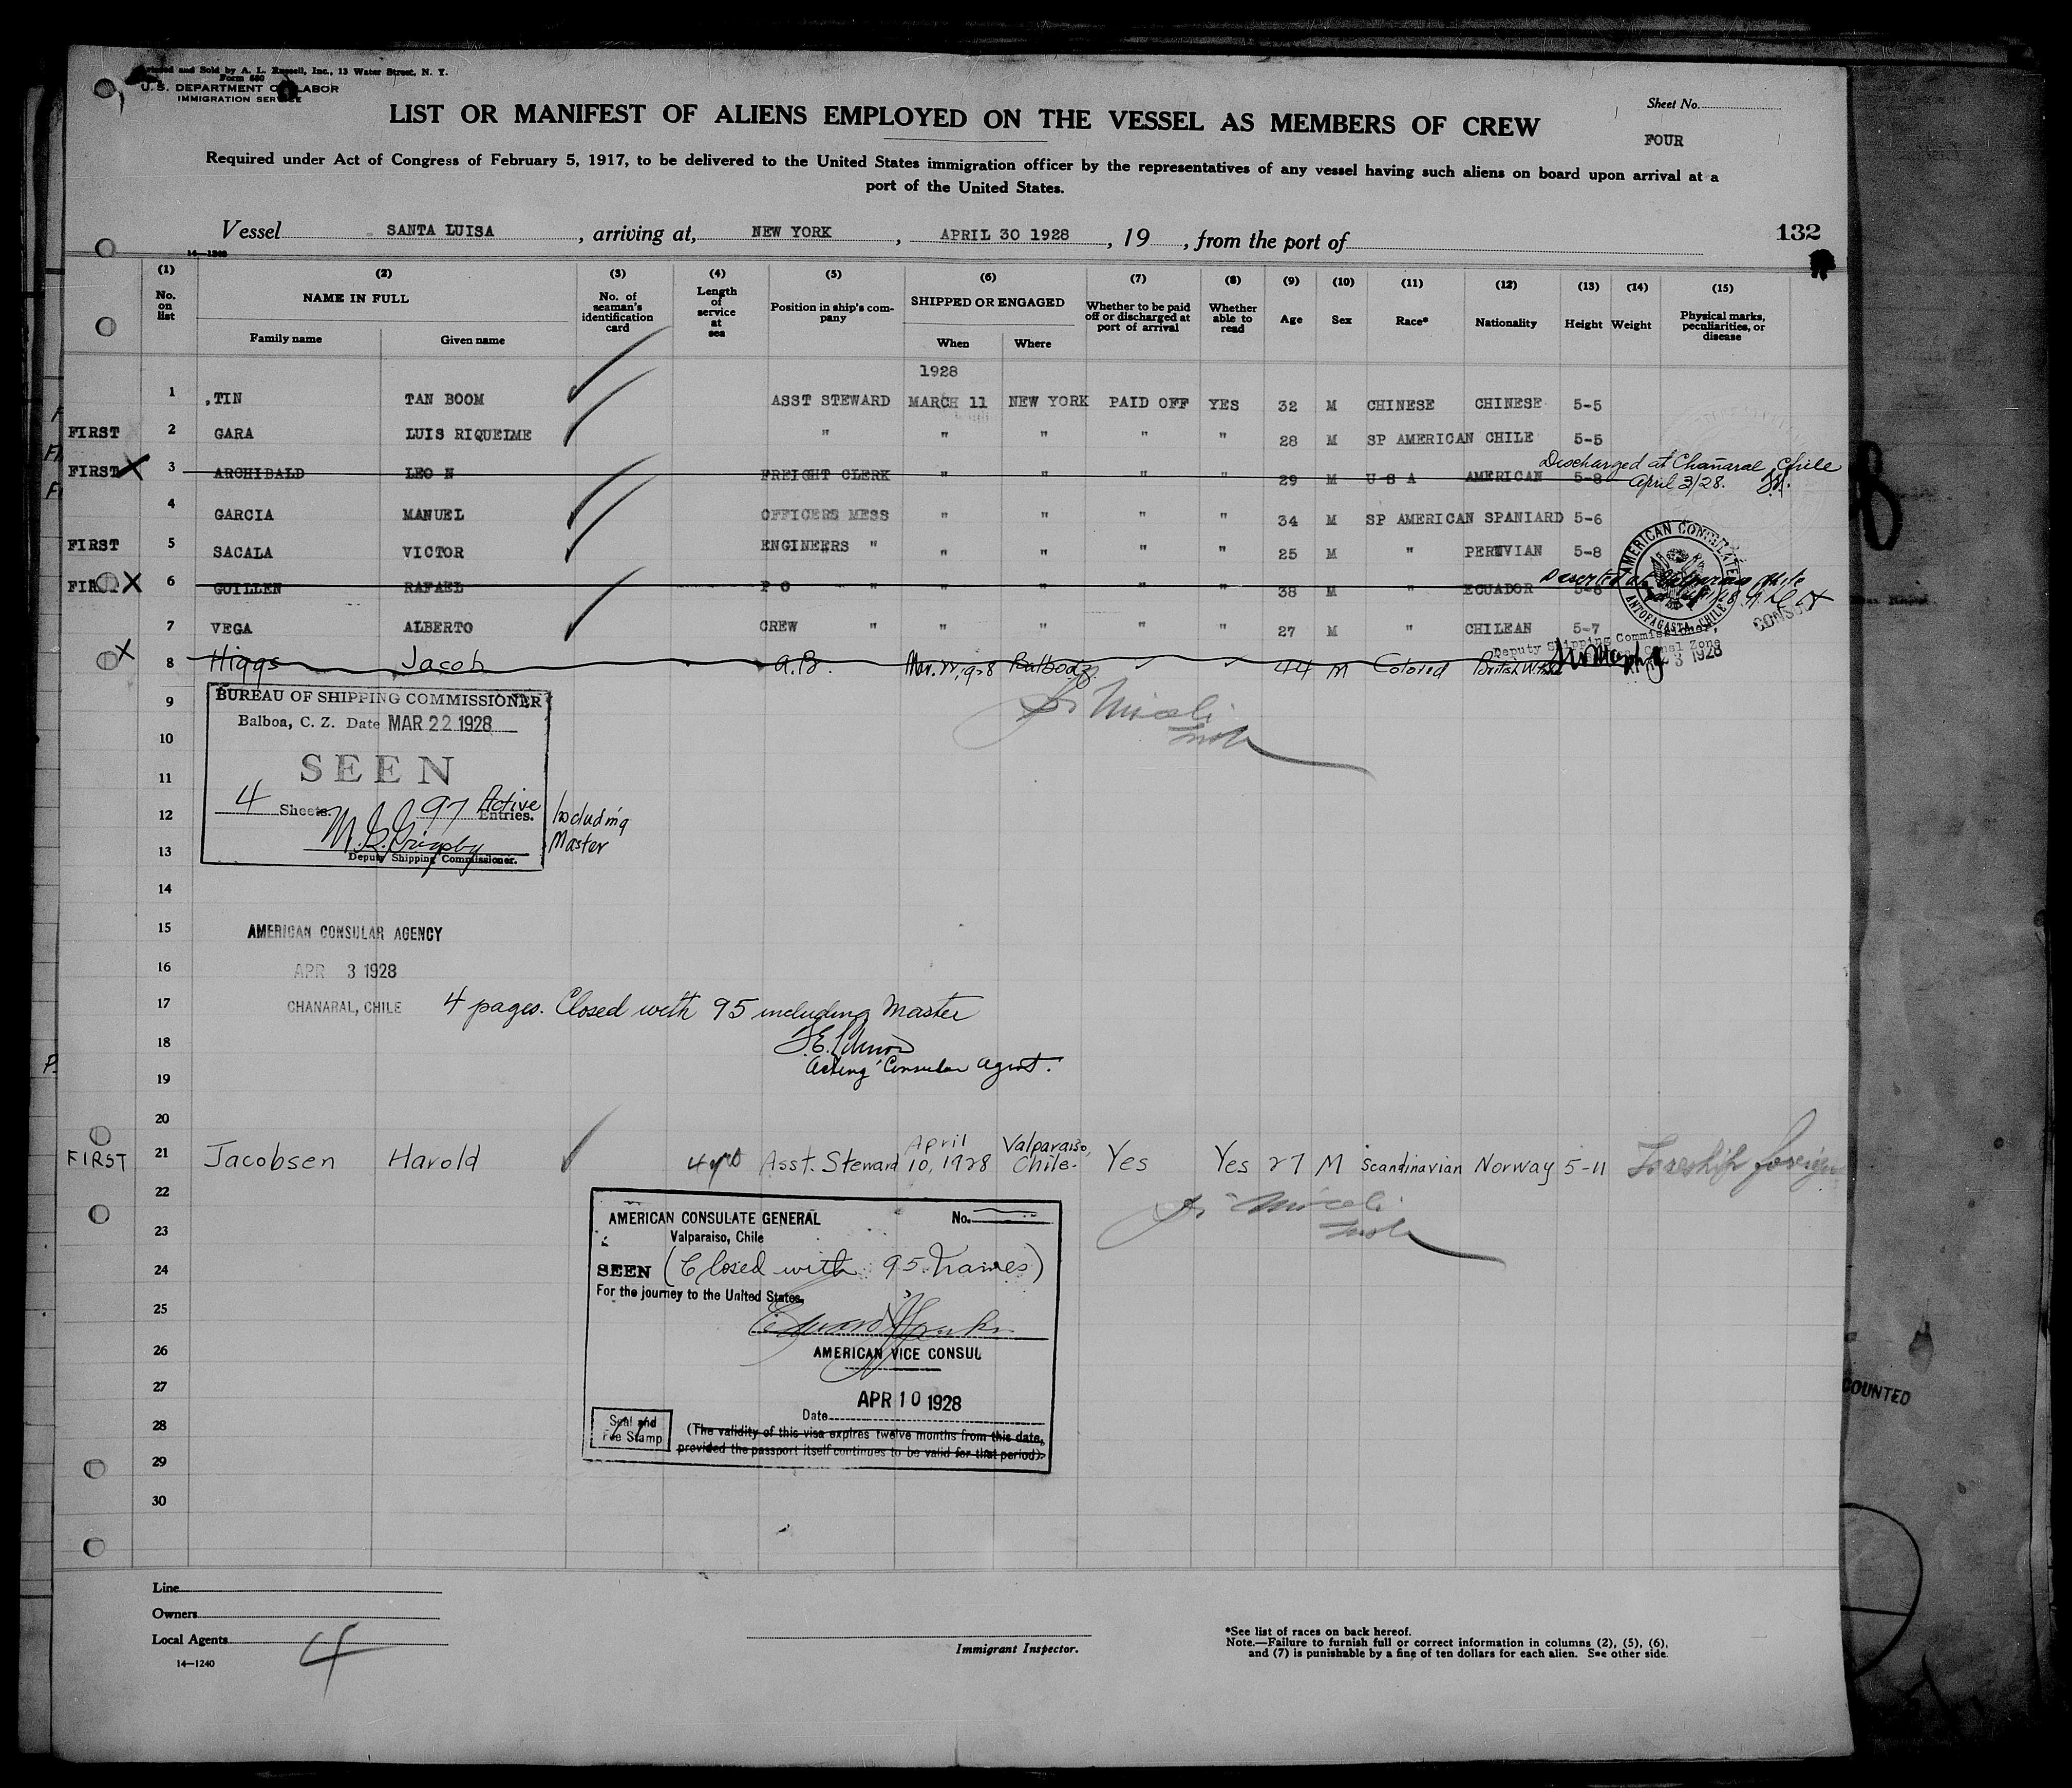 Printed and Sold by A. L. Russell, Inc., 13 Water Street, N. Y.
Form 680
U. S. DEPARTMENT OF LABOR
IMMIGRATION SERVICE
Sheet No.
FOUR
LIST OR MANIFEST OF ALIENS EMPLOYED ON THE VESSEL AS MEMBERS OF CREW
Required under Act of Congress of February 5, 1917, to be delivered to the United States immigration officer by the representatives of any vessel having such aliens on board upon arrival at a
port of the United States.
Vessel SANTA LUISA , arriving at, NEW YORK , APRIL 30 1928 , 19 , from the port of
132
14—1240
(1) (2) (3) (4) (5) (6) (7) (8) (9) (10) (11) (12) (13) (14) (15)
No. on list NAME IN FULL Family name Given name No. of seaman's identification card Length of service at sea Position in ship's company SHIPPED OR ENGAGED When Where Whether to be paid off or discharged at port of arrival Whether able to read Age Sex Race* Nationality Height Weight Physical marks, peculiarities, or disease
1928
1 TIN TAN BOOM ASST STEWARD MARCH 11 NEW YORK PAID OFF YES 32 M CHINESE CHINESE 5-5
FIRST 2 GARA LUIS RIQUELME " " " " " 28 M SP AMERICAN CHILE 5-5
FIRST X 3 ARCHIBALD LEO N FREIGHT CLERK " " " " 29 M U S A AMERICAN 5-8 Discharged at Chañaral, Chile
April 3/28.
4 GARCIA MANUEL OFFICERS MESS " " " " 34 M SP AMERICAN SPANIARD 5-6
FIRST 5 SACALA VICTOR ENGINEERS " " " " " 25 M " PERUVIAN 5-8
FIRST X 6 GUILLEN RAFAEL P O " " " " " 38 M " ECUADOR 5-6 Deserted at Valparaiso Chile
7 VEGA ALBERTO CREW " " " " " 27 M " CHILEAN 5-7
AMERICAN CONSULATE
ANTOFAGASTA, CHILE
CONSUL
Deputy Shipping Commissioner,
Canal Zone
X 8 Higgs Jacob A.B. Mar. 22, 1928 Balboa 44 M Colored British W. Ind
3 1928
9
BUREAU OF SHIPPING COMMISSIONER
Balboa, C. Z. Date MAR 22 1928
10
SEEN
11
4 Sheets. 97 Active Entries. Including Master
12
M. G. Grigsby
13
Deputy Shipping Commissioner.
14
15
AMERICAN CONSULAR AGENCY
16
APR 3 1928
17
CHANARAL, CHILE 4 pages. Closed with 95 including Master
18
Acting Consular Agent.
19
20
FIRST 21 Jacobsen Harold 4 yrs Asst. Steward April 10, 1928 Valparaiso, Chile. Yes Yes 27 M Scandinavian Norway 5-11 foreign
22
AMERICAN CONSULATE GENERAL No.
23
Valparaiso, Chile
24
SEEN (Closed with 95 names)
For the journey to the United States,
25
26
AMERICAN VICE CONSUL
27
APR 10 1928
28
Date
Seal and Fee Stamp
(The validity of this visa expires twelve months from this date,
29
provided the passport itself continues to be valid for that period).
30
COUNTED
Line
Owners
Local Agents
4
14—1240
Immigrant Inspector.
*See list of races on back hereof.
Note.—Failure to furnish full or correct information in columns (2), (5), (6),
and (7) is punishable by a fine of ten dollars for each alien. See other side.